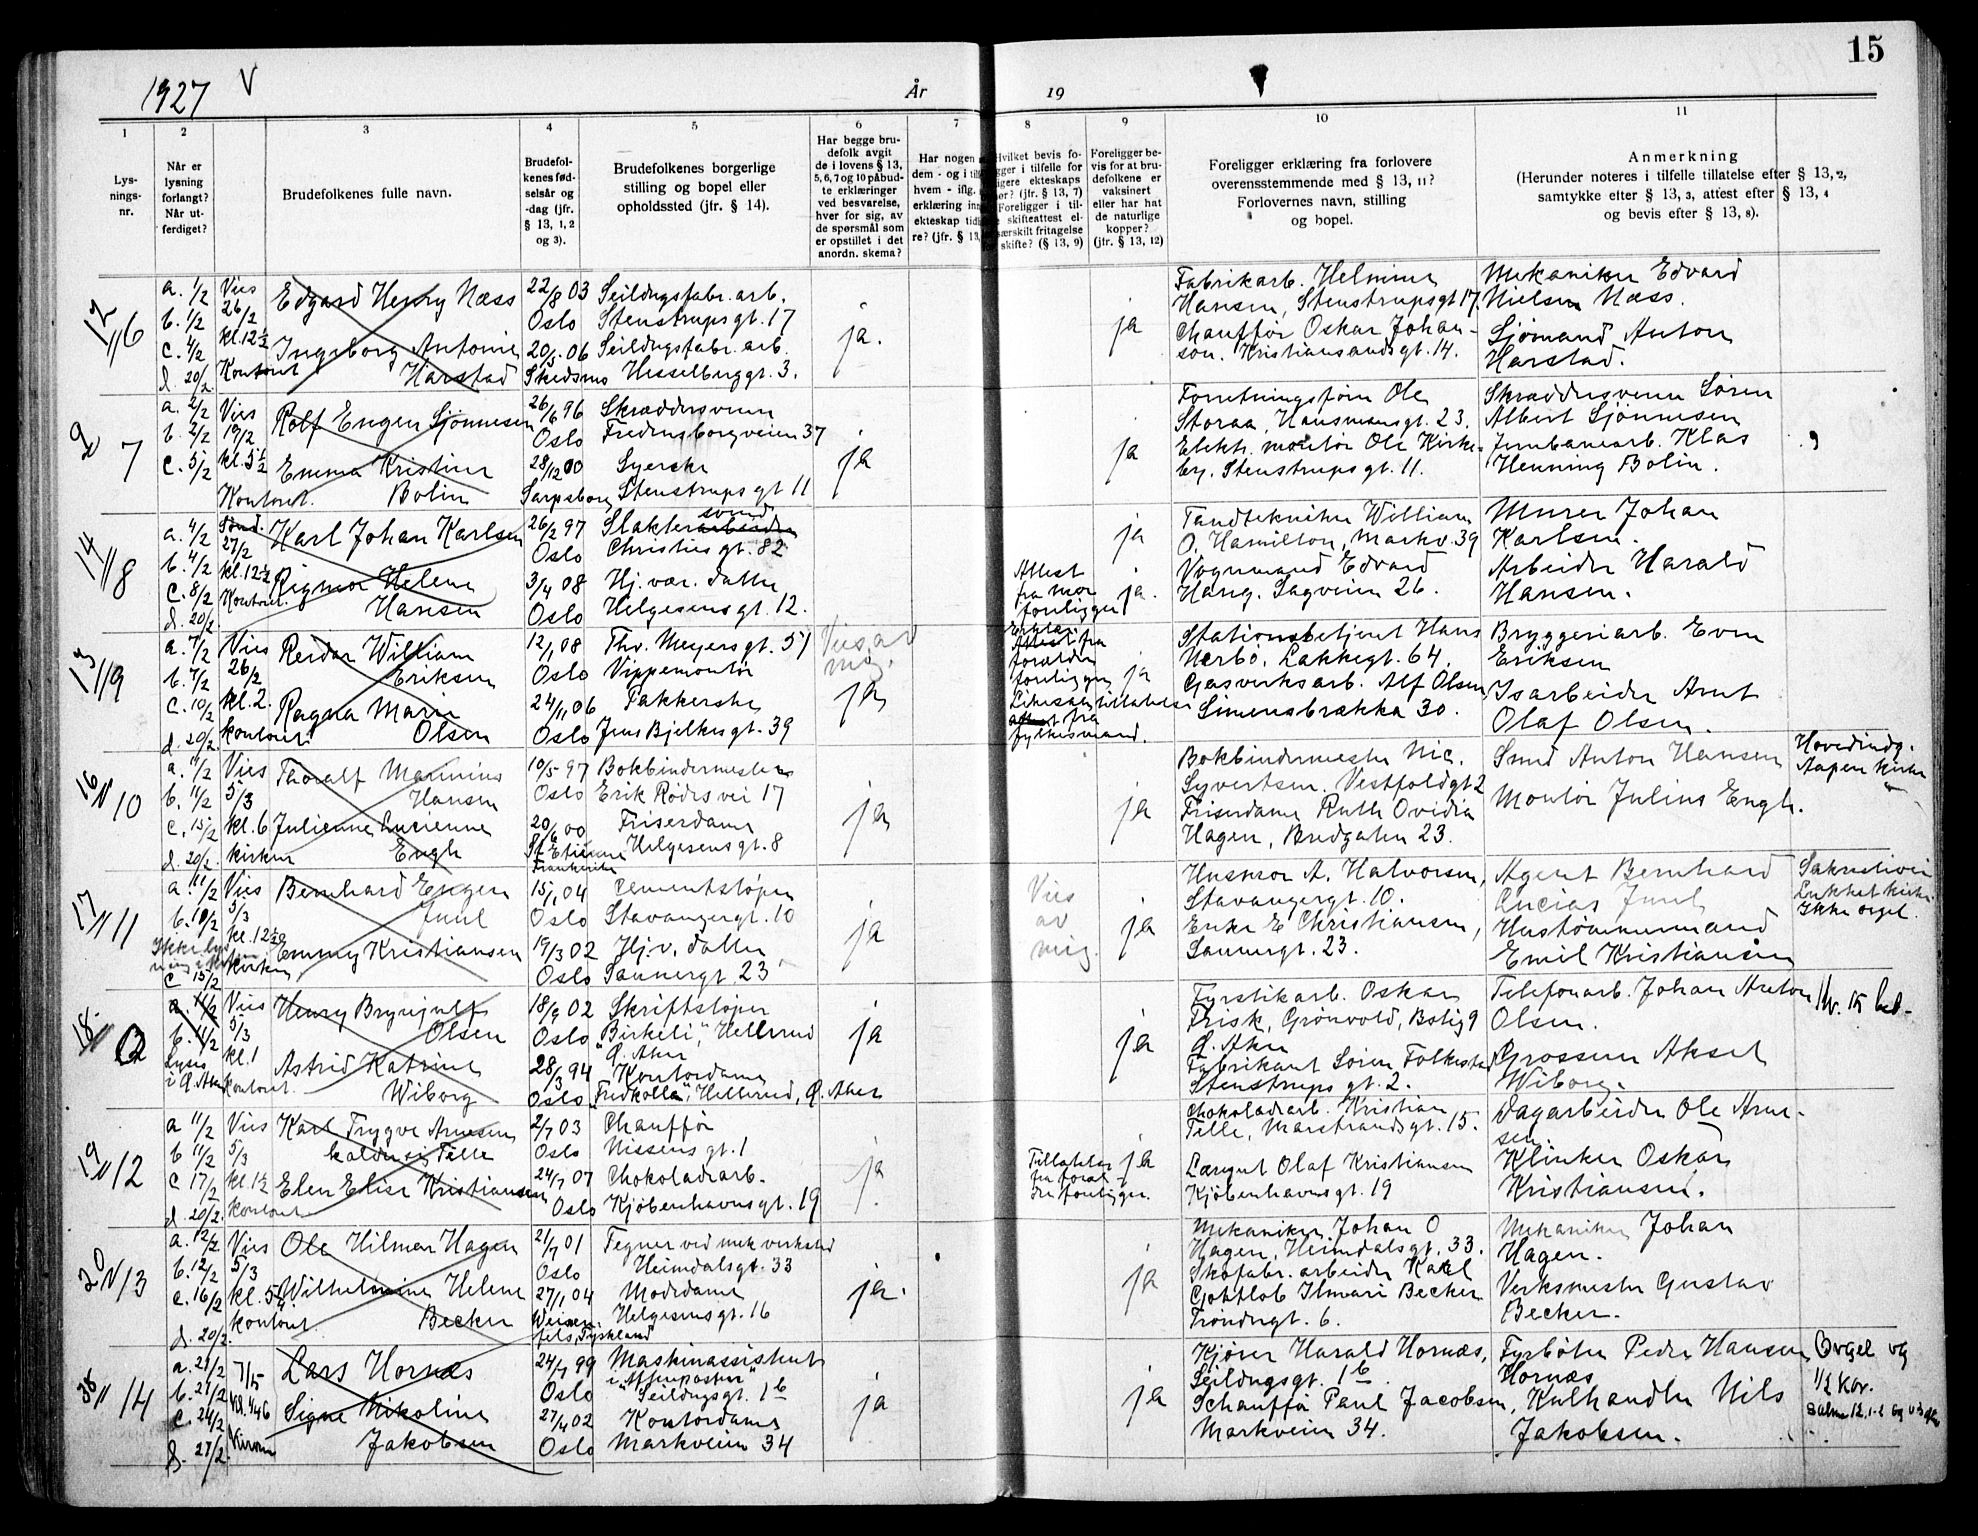 15
1927 V
År
19
1
2
3
4
5
6
7
8
9
10
11
Lys-
nings-
nr.
Når er
lysning
forlangt?
Når ut-
ferdiget?
Brudefolkenes fulle navn.
Brudefol-
kenes fød-
selsår og
-dag (jfr.
§ 13, 1, 2
og 3).
Brudefolkenes borgerlige
stilling og bopel eller
opholdssted (jfr. § 14).
Har begge bru-
defolk avgit
de i lovens § 13,
5, 6, 7 og 10 påbud-
te erklæringer
ved besvarelse,
hver for sig, av
de spørsmål som
er opstillet i det
anordn. skema?
Har nogen
dem - og i
hvem - iflg.
erklæring in
ekteskap tid
re? (jfr. § 13,
Hvilket bevis fo-
gger i tilfelle for
igere ekteskaps
or? (jfr. § 13, 7)
Foreligger i til-
e skifteattest el-
særskilt fritagelse
skifte? (§ 13, 9)
Foreligger be-
vis for at bru-
defolkene er
vaksinert
eller har hat
de naturlige
kopper?
(jfr. § 13, 12)
Foreligger erklæring fra forlovere
overensstemmende med § 13, 11?
Forlovernes navn, stilling
og bopel.
Anmerkning
(Herunder noteres i tilfelle tillatelse efter § 13, 2,
samtykke efter § 13, 3, attest efter § 13, 4
og bevis efter § 13, 8).
12 // 6
a. 1/2 Vies
b. 1/2 26/2
c. 4/2 kl. 12 1/2
d. 20/2 Kontoret
Edgard Henry Næss
Ingeborg Antonie
Harstad
22/8 03
Oslo
20/5 06
Skedsmo
Seildugsfabr. arb.
Stenstrupsgt. 17
Seildugsfabr. arb.
Hesselberggt. 3.
ja.
ja
Fabrikarb. Helmer
Hansen, Stenstrupsgt 17.
Chauffør Oskar Johan-
son. Kristiansandsgt. 14.
Mekaniker Edvard
Nielsen Næss.
Sjømand Anton
Harstad.
9 7
a. 2/2 Vies
b. 2/2 19/2
c. 5/2 kl. 5 1/2
Kontoret.
Rolf Engen Sjønnesen
Emma Kristine
Bolin
26/6 96
Oslo
28/12 00
Sarpsborg
Skræddersvenn
Fredensborgveien 37
Syerske
Stenstrupsgt 11
ja
ja
Forretningsfører Ole
Storaa, Hausmansgt. 23.
Elektr. montør Ole Kirke-
by. Stenstrupsgt. 11.
Skræddersvenn Søren
Albert Sjønnesen
Jernbanearb. Klas
Henning Bolin.
14 // 8
a. 4/2 Sønd.
b. 4/2 27/2
c. 8/2 kl. 12 1/2
d. 20/2 Kontoret.
Karl Johan Karlsen
Rigmor Helene
Hansen
26/2 97
Oslo
3/4 08
Oslo
Slakterarbeider
svend
Christiesgt. 82
Hj. vær. datter
Helgesensgt. 12.
Attest
fra mor
foreligger
ja
ja.
Tandtekniker William
O. Hamilton, Markv. 39
Vognmand Edvard
Haug. Sagveien 26.
Murer Johan
Karlsen.
Arbeider Harald
Hansen.
13 // 9
a. 7/2 Vies
b. 7/2 26/2
c. 10/2 kl. 2.
d. 20/2 kontoret
Reidar William
Eriksen
Ragna Marie
Olsen
12/1 08
Oslo
24/11 06
Oslo
Thv. Meyersgt. 51
Vippemontør
Pakkerske
Jens Bjelkesgt. 39
Vies av
mig.
ja
Erklær.
Attest fra
forældre
foreligger
tillatelse
fra
fylkesmand.
ja
Stationsbetjent Hans
Nerbö. Lakkegt. 64.
Gasverksarb. Alf Olsen
Simensbrækka 30.
Bryggeriarb. Even
Eriksen
Isarbeider Arnt
Olaf Olsen.
16 // 10
a. 11/2 Vies
b. 11/2 5/3
c. 15/2 kl. 6
d. 20/2. kirken
Thoralf Mannius
Hansen
Julienne Lucienne
Engh
10/5 97
Oslo
20/6 00
St Etienne
Frankerike
Bokbindermester
Erik Rødes vei 17
Friserdame
Helgesensgt. 8
ja
ja
Bokbindermester Nic.
Syvertsen. Vestfoldgt 2
Friserdame Ruth Ovidia
Hagen, Bredgaten 23.
Smed Anton Hansen
Montør Julius Engh.
Hovedindg.
Aapen kirke
17 // 11
a. 11/2 Vies
b. 10/2 5/3
kl. 12 1/2
kirken
c 15/2
Bernhard Engen
Juul
Emmy Kristiansen
15/1 04
Oslo
19/3 02
Oslo
Cementstøper
Stavangergt. 10
Hj. v. datter
Sannergt. 23
ja
Vies
av
mig.
ja
Husmor A. Halvorsen,
Stavangergt. 10.
Enke E Christiansen,
Sannergt. 23.
Agent Bernhard
Lucias Juul
Hustømmermand
Emil Kristiansen
Sakristivei
Lukket kirke
Ikke orgel.
18. 0
a. 11/2 Vies
b. 11/2 5/3
Lyses kl. 1
i Ø. Aker kontoret.
Henry Brynjulf
Olsen
Astrid Katrine
Wiborg
18/9 02
Oslo
28/3 94
Oslo
Skriftstøper
"Birkeli", Hellerud
Ø. Aker
Kontordame
"Fredkolla", Hellerud, Ø. Aker
ja
ja
Fyrstikarb. Oskar
Frisk, Grönvold, Bolig 9
Ø. Aker
Fabrikant Søren Folkestad
Stenstrupsgt. 2.
Telefonarb. Johan Anton
Olsen.
Grosserer Aksel
Wiborg.
19 // 12
a 11/2 Vies
b 11/2 5/3
c 17/2 kl. 1 1/2
d. 20/2. kontoret
Karl Trygve Arnesen
kalder sig Tille
Elen Elise Kristiansen
2/7 03
Oslo
24/7 07
Oslo
Chauffør
Nissensgt. 1
Chokoladearb.
Kjøbenhavnsgt. 19
ja
Tillatelse
fra foræl-
dre foreligger.
ja
Chokoladearb. Kristian
Tille, Marstrandsgt. 15.
Læregut Olaf Kristiansen
Kjöbenhavnsgt. 19
Dagarbeider Ole Arne-
sen.
Klinker Oskar
Kristiansen.
20 // 13
a. 12/2 Vies
b. 12/2 5/3
c. 16/2 kl. 5 1/4
d. 20/2. kontoret.
Ole Hilmar Hagen
Wilhelmine Helene
Becker
21/7 01
Oslo
27/1 04
Weissen-
fels, Tyskland
Tegner ved mek verksted
Heimdalsgt. 33
Modedame
Helgesensgt. 16
ja.
ja
Mekaniker Johan O
Hagen, Heimdalsgt. 33.
Skofabr. arbeider Karl
Gottlob Ilmari Becker
Tröndergt. 6.
Mekaniker Johan
Hagen.
Verksmester Gustav
Becker.
38 // 14
a. 21/2 7/5
b. 21/2 kl. 1/4 6
c. 24/2 Kirken
d. 27/2.
Lars Hornæs
Signe Nikoline
Jakobsen
24/7 99
Oslo
27/4 02
Oslo
Maskinassistent
i "Aftenposten"
Seildugsgt. 1b
Kontordame
Markveien 34
ja
ja
Kjører Harald Hornæs,
Seildugsgt. 1b.
Schauffør Paul Jacobsen,
Markveien 34.
Fyrbøter Peder Hansen
Hornæs
Kulhandler Nils
Jakobsen.
Orgel og
1/2 kor.